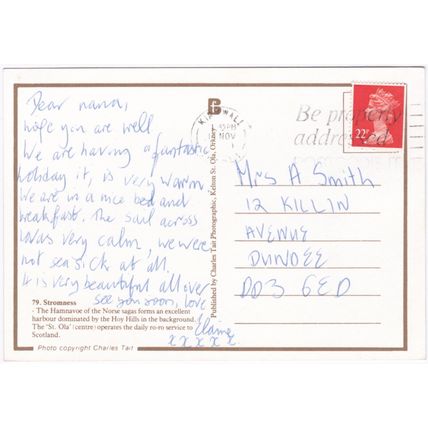 Dear nana,
hope you are well
We are having a fantastic
holiday it, is very warm.
We are in a nice bed and
breakfast. The sail across
was very calm, we were
not sea sick at all.
It is very beautiful all over
see you soon, love
Elaine
x x x x x
79. Stromness
- The Hamnavoe of the Norse sagas forms an excellent
harbour dominated by the Hoy Hills in the background.
The 'St. Ola' (centre) operates the daily ro-ro service to
Scotland.
Photo copyright Charles Tait
Published by Charles Tait Photographic, Kelton St. Ola, Orkney
KIRKWALL
PM
NOV
Be properly
addressed
22P
Mrs A Smith
12 KILLIN
AVENUE
DUNDEE
DD3 6ED